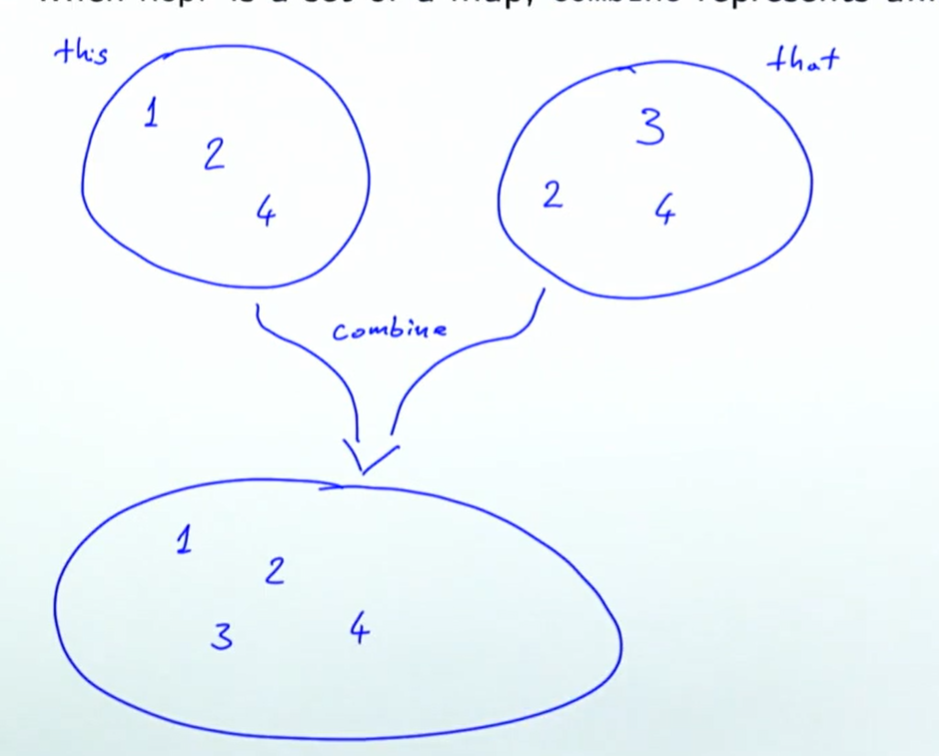 is a set or a map, combine represents
this
that
1
2
4
3
2
4
combine
1
2
3
4